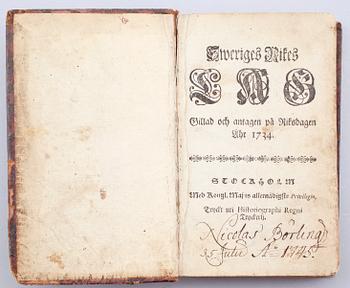 Sweriges Rikes
LAG
Gillad och antagen på Riksdagen
Åhr 1734.
STOCKHOLM
Med Kongl. Maj:ts allernådigste Privilegio,
Tryckt uti Historiographi Regni
Tryckeri.
Nicolas Börling
Julii Ao 1745.